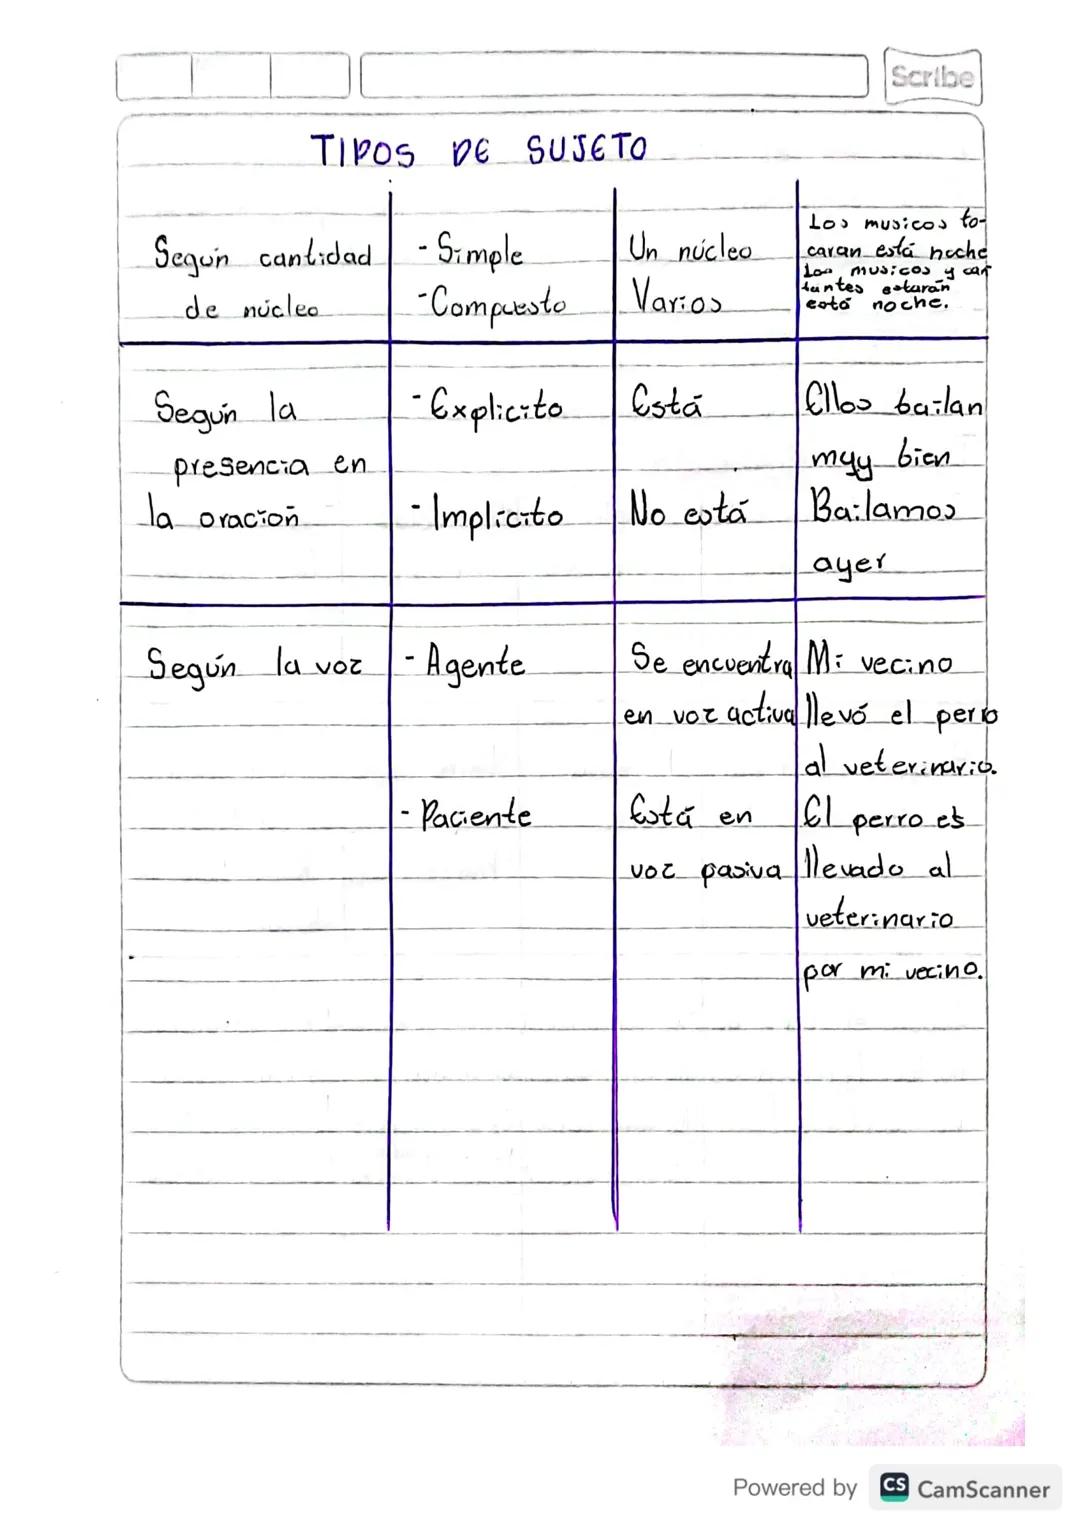 Scribe
TIPOS DE SUJETO
Según cantidad
de núcleo
- Simple
- Compuesto
Un núcleo
Varios
Los musicos to-
caran está noche
Los musicos y can
tantes estarán
está noche.
Según la
presencia en
la oración
- Explicito
- Implícito
Está
No está
Ellos bailan
muy bien
Bailamos
ayer
Según la voz
- Agente
- Paciente
Se encuentra
en voz activa
Está en
voz pasiva
Mi vecino
llevó el perro
al veterinario.
El perro es
llevado al
veterinario
por mi vecino.
Powered by CS CamScanner